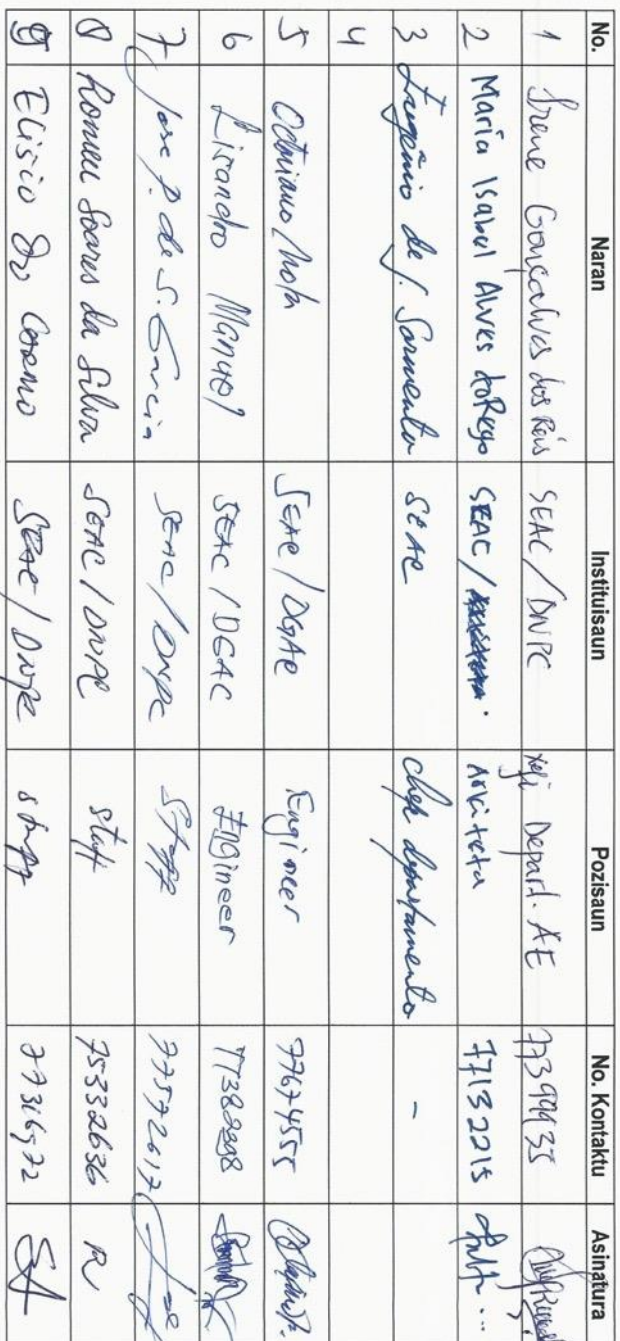 No. Naran Instituisaun Pozisaun No. Kontaktu Asinatura
1 Irene Gonçalves dos Reis SEAC/DNPC Xefi Depart. AE
2 Maria Isabel Alves do Rego SEAC/ Arkiteta 77132215
3 Eugénio de J. Sarmento SEAC chefe departamento -
4
5 Octaviano Mota SEAC/DGAC Engineer 77674555
6 Lisandro Manuel SEAC/DGAC Engineer 77382298
7 Jose P. de S. Garcia SEAC/DNPC Staff 77572617
8 Romeu Soares da Silva SEAC/DNPC staff 75332636
9 Elisio Do Carmo SEAC/DNPC staff 77316972